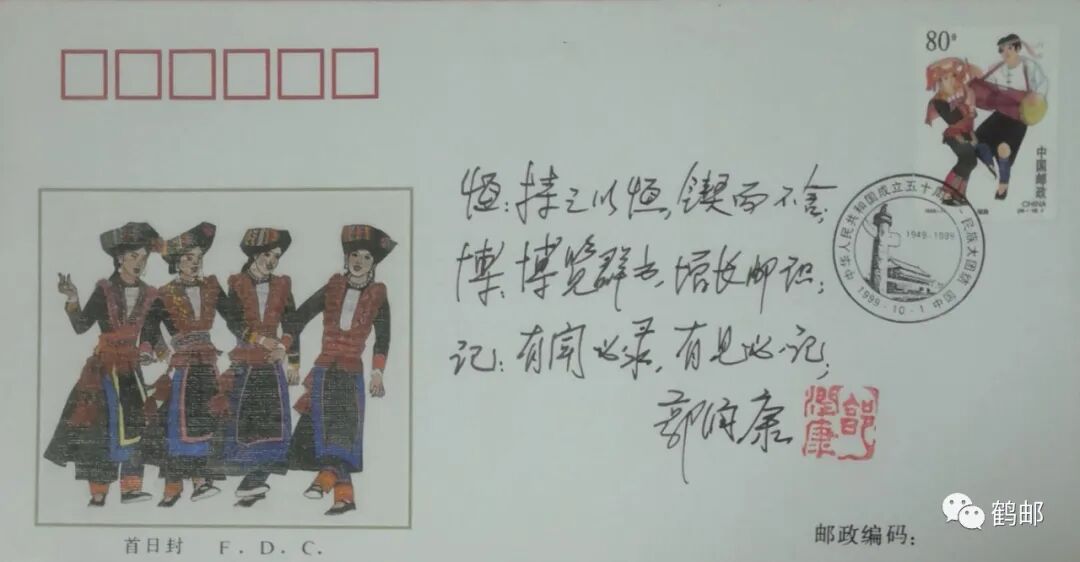 80分
中国邮政
CHINA
中华人民共和国成立五十周年-民族大团结
1949-1999
1999-10-1 中国
恒：持之以恒，锲而不舍；
博：博览群书，增长邮识；
记：有闻必录，有见必记；
郜润康
郜潤康
首日封 F.D.C.
邮政编码：
鹤邮